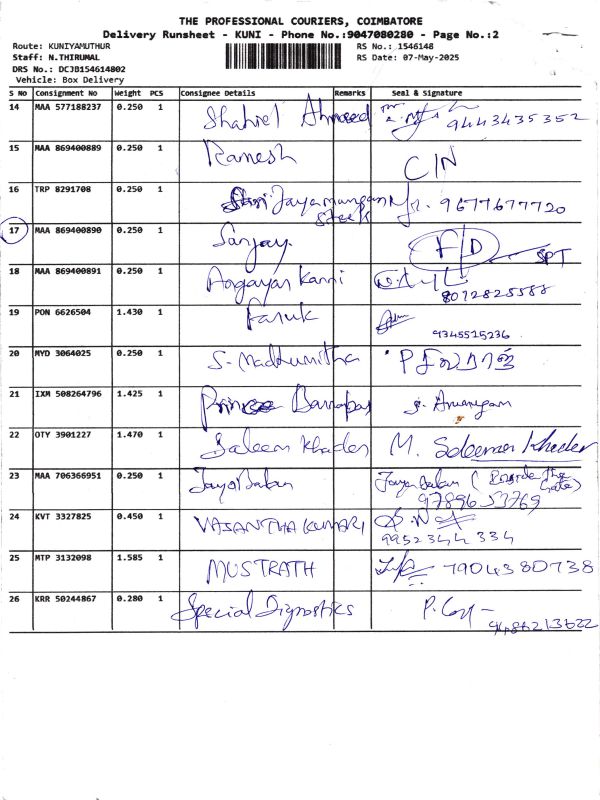 THE PROFESSIONAL COURIERS, COIMBATORE
Delivery Runsheet - KUNI - Phone No.:9047080280 - Page No.:2
Route: KUNIYAMUTHUR
RS No.: 1546148
Staff: N.THIRUMAL
RS Date: 07-May-2025
DRS No.: DCJB154614802
Vehicle: Box Delivery
S No Consignment No Weight PCS Consignee Details Remarks Seal & Signature
14 MAA 577188237 0.250 1 Shahul Ahmeed 9443435352
15 MAA 869400889 0.250 1 Ramesh C/N
16 TRP 8291708 0.250 1 Sri Jayamurugan 9677677720
Steels
17 MAA 869400890 0.250 1 Sanjay. F/D SPT
18 MAA 869400891 0.250 1 Angayar Kanni
8072825588
19 PON 6626504 1.430 1 Faruk
9345515236
20 MYD 3064025 0.250 1 S. Madhumitha
21 IXM 508264796 1.425 1 Prince Barnabas
22 OTY 3901227 1.470 1 Saleem Khader M. Soleeman Khader
23 MAA 706366951 0.250 1 Jaya Balan Jaya Balan (Inside the
Gate)
9789653769
24 KVT 3327825 0.450 1 VASANTHA KUMARI
9952344334
25 MTP 3132098 1.585 1 MUSTRATH 7904380738
26 KRR 50244867 0.280 1 Special Dignostics
9486213622